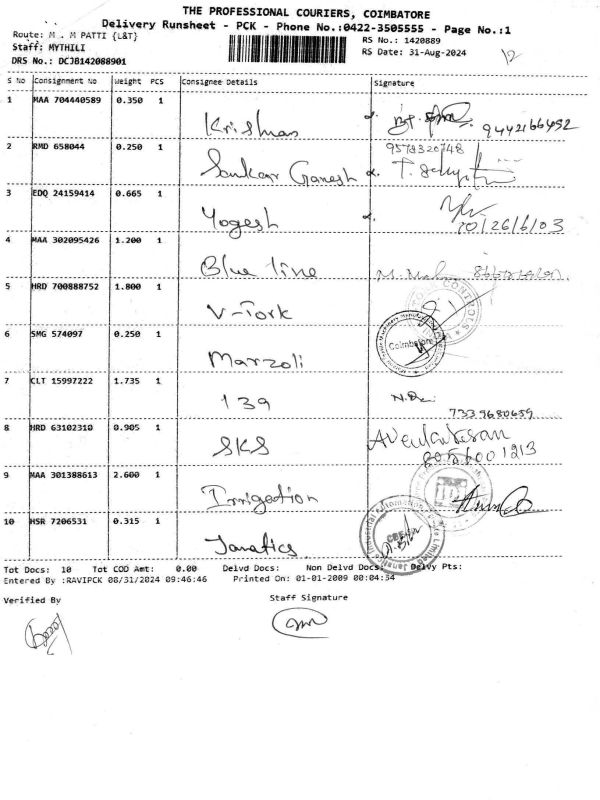 THE PROFESSIONAL COURIERS, COIMBATORE
Delivery Runsheet - PCK - Phone No.:0422-3505555 - Page No.:1
Route: M . M PATTI {L&T}
RS No.: 1420889
Staff: MYTHILI
RS Date: 31-Aug-2024
12
DRS No.: DCJB142088901
S No Consignment No Weight PCS Consignee Details Signature
1 MAA 704440589 0.350 1 Krishnan 9442166452
2 RMD 658044 0.250 1 Sankar Ganesh 9578320748
3 EDQ 24159414 0.665 1 Yogesh
4 MAA 302095426 1.200 1 Blue line
5 HRD 700888752 1.800 1 V-Tork
6 SMG 574097 0.250 1 Marzoli Coimbatore
7 CLT 15997222 1.735 1 139 7339680659
8 HRD 63102310 0.905 1 SKS
9 MAA 301388613 2.600 1 Irrigation
10 HSR 7206531 0.315 1 Janatics
Tot Docs: 10 Tot COD Amt: 0.00 Delvd Docs: Non Delvd Docs: Delvy Pts:
Entered By :RAVIPCK 08/31/2024 09:46:46 Printed On: 01-01-2009 00:04:34
Verified By
Staff Signature